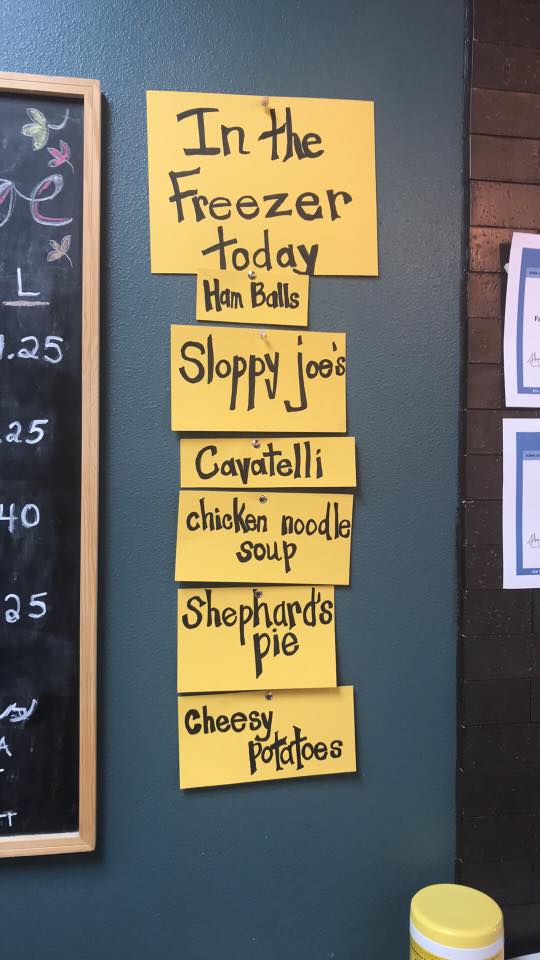 In the
Freezer
today
Ham Balls
Sloppy joe's
Cavatelli
chicken noodle
soup
Shephard's
pie
Cheesy
Potatoes
L
.25
.25
40
25